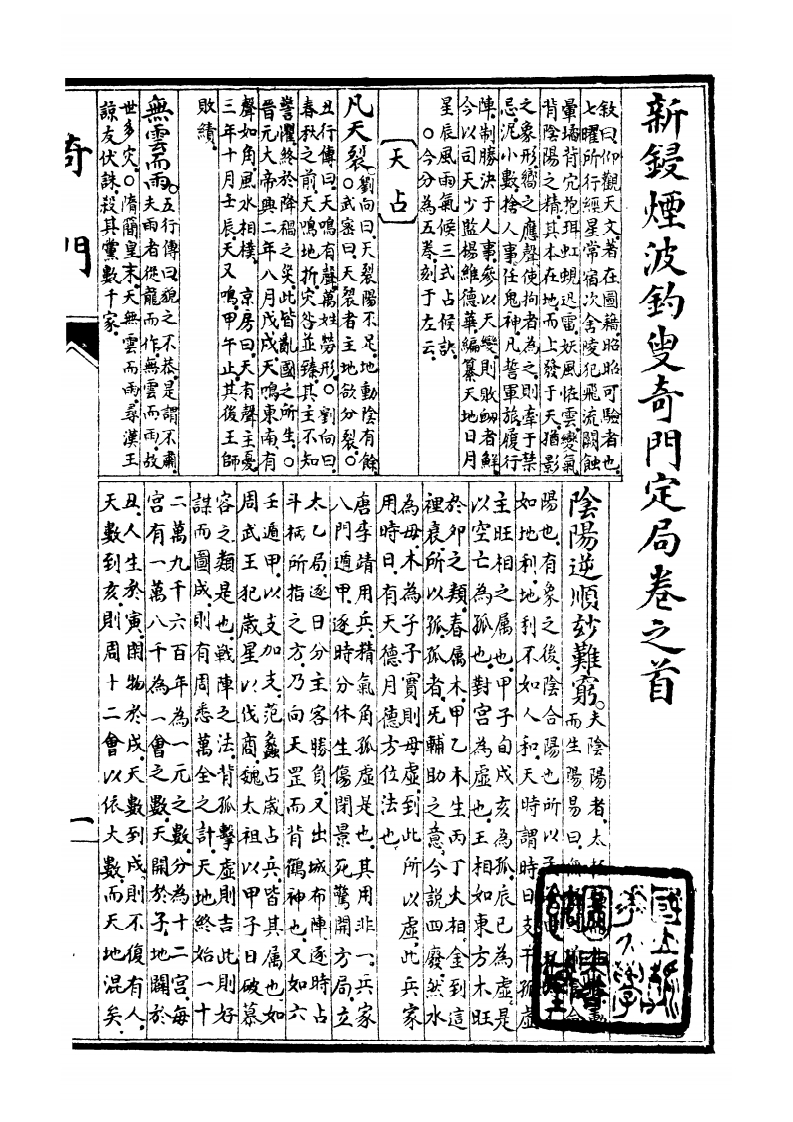 新鋟煙波釣叟奇門定局卷之首
敘曰仰觀天文著在圖籍昭昭可驗者也
七曜所行經星常宿次舍陵犯飛流鬭蝕
暈璚背穴抱珥虹蜺迅雷妖風恠雲變氣
背陰陽之精其本在地而上發于天猶影
之象形響之應聲使拘者為之則牽于禁
忌泥小數捨人事任鬼神凡誓軍旅履行
陣制勝決于人事參以天變則敗衂者鮮
今以司天少監楊維德華編纂天地日月
星辰風雨氣候三式占候訣
○今分為五卷刻于左云
天占
凡天裂劉向曰天裂陽不足地動陰有餘
○武密曰天裂者主地欲分裂○
丑行傳曰天鳴有聲萬姓勞形○劉向曰
春秋之前天鳴地折灾咎並臻其主不知
警懼終於降禍之災此皆亂國之所生○
晉元大帝興二年八月戊戌天鳴東南有
聲如角風水相樸 京房曰天有聲主憂
三年十月壬辰天又鳴甲午止其後王師
敗績
無雲而雨五行傳曰貌之不恭是謂不肅
夫雨者從龍而作無雲而雨故
世多灾○隋蕳皇末天無雲而雨尋漢王
諒友伏誅殺其黨數千家
陰陽逆順妙難窮夫陰陽者太
而生陽易曰
陽也有象之後陰合陽也所以
如地利地利不如人和天時謂時日支干孤虛
主旺相之属也甲子旬戌亥為孤辰巳為虛是
以空亡為孤也對宮為虛也王相如東方木旺
於卯之類春属木甲乙木生丙丁火相金到這
裡衰所以孤孤者旡輔助之意今説四廢然水
為母木為子子實則母虛到此所以虛此兵家
用時日有天德月德方位法也
唐李靖用兵精氣角孤虛是也其用非一兵家
八門遁甲逐時分休生傷閉景死驚開方局立
太乙局逐日分主客勝負又出城布陣逐時占
斗柄所指之方乃向天罡而背鶴神也又如六
壬遁甲以支加支范蠡占歲占兵皆其属也如
周武王犯歲星以伐商魏太祖以甲子日破慕
容之類是也戰陣之法背孤擊虛則吉此則好
謀而圖成則有周悉萬全之計天地終始一十
二萬九千六百年為一元之數分為十二宮每
宮有一萬八千為一會之數天開於子地闢於
丑人生於寅閉物於戌天數到戌則不復有人
天數到亥則周十二會以依大數而天地混矣
奇門
一